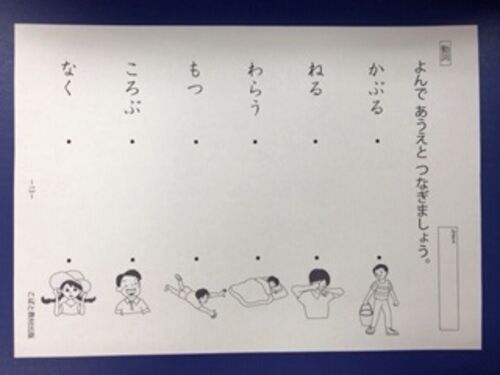 動詞
よんで あうえと つなぎましょう。
かぶる
ねる
わらう
もつ
ころぶ
なく